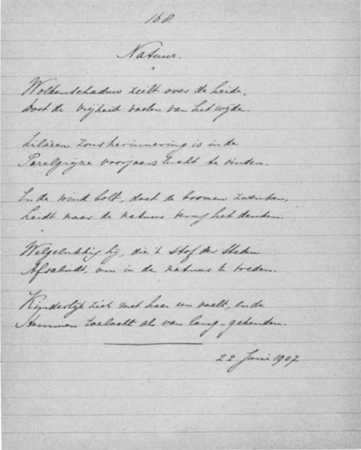 168.
Natuur.
Wolkenschaduw zeilt over de heide,
Doet de vrijheid voelen van het wijde.
Lilazen zonsherinnering is in de
Parelgrijze voorjaarslucht te vinden.
En de wind doet de boomen zwenken,
naar de natuur terug het denken.
Welgelukkig hij, die 't stof der steden
Afschudt, om in de natuur te treden.
Kinderlijk zich met haar een voelt, en de
Stemmen toelacht als van lang-gekenden.
22 Juni 1907